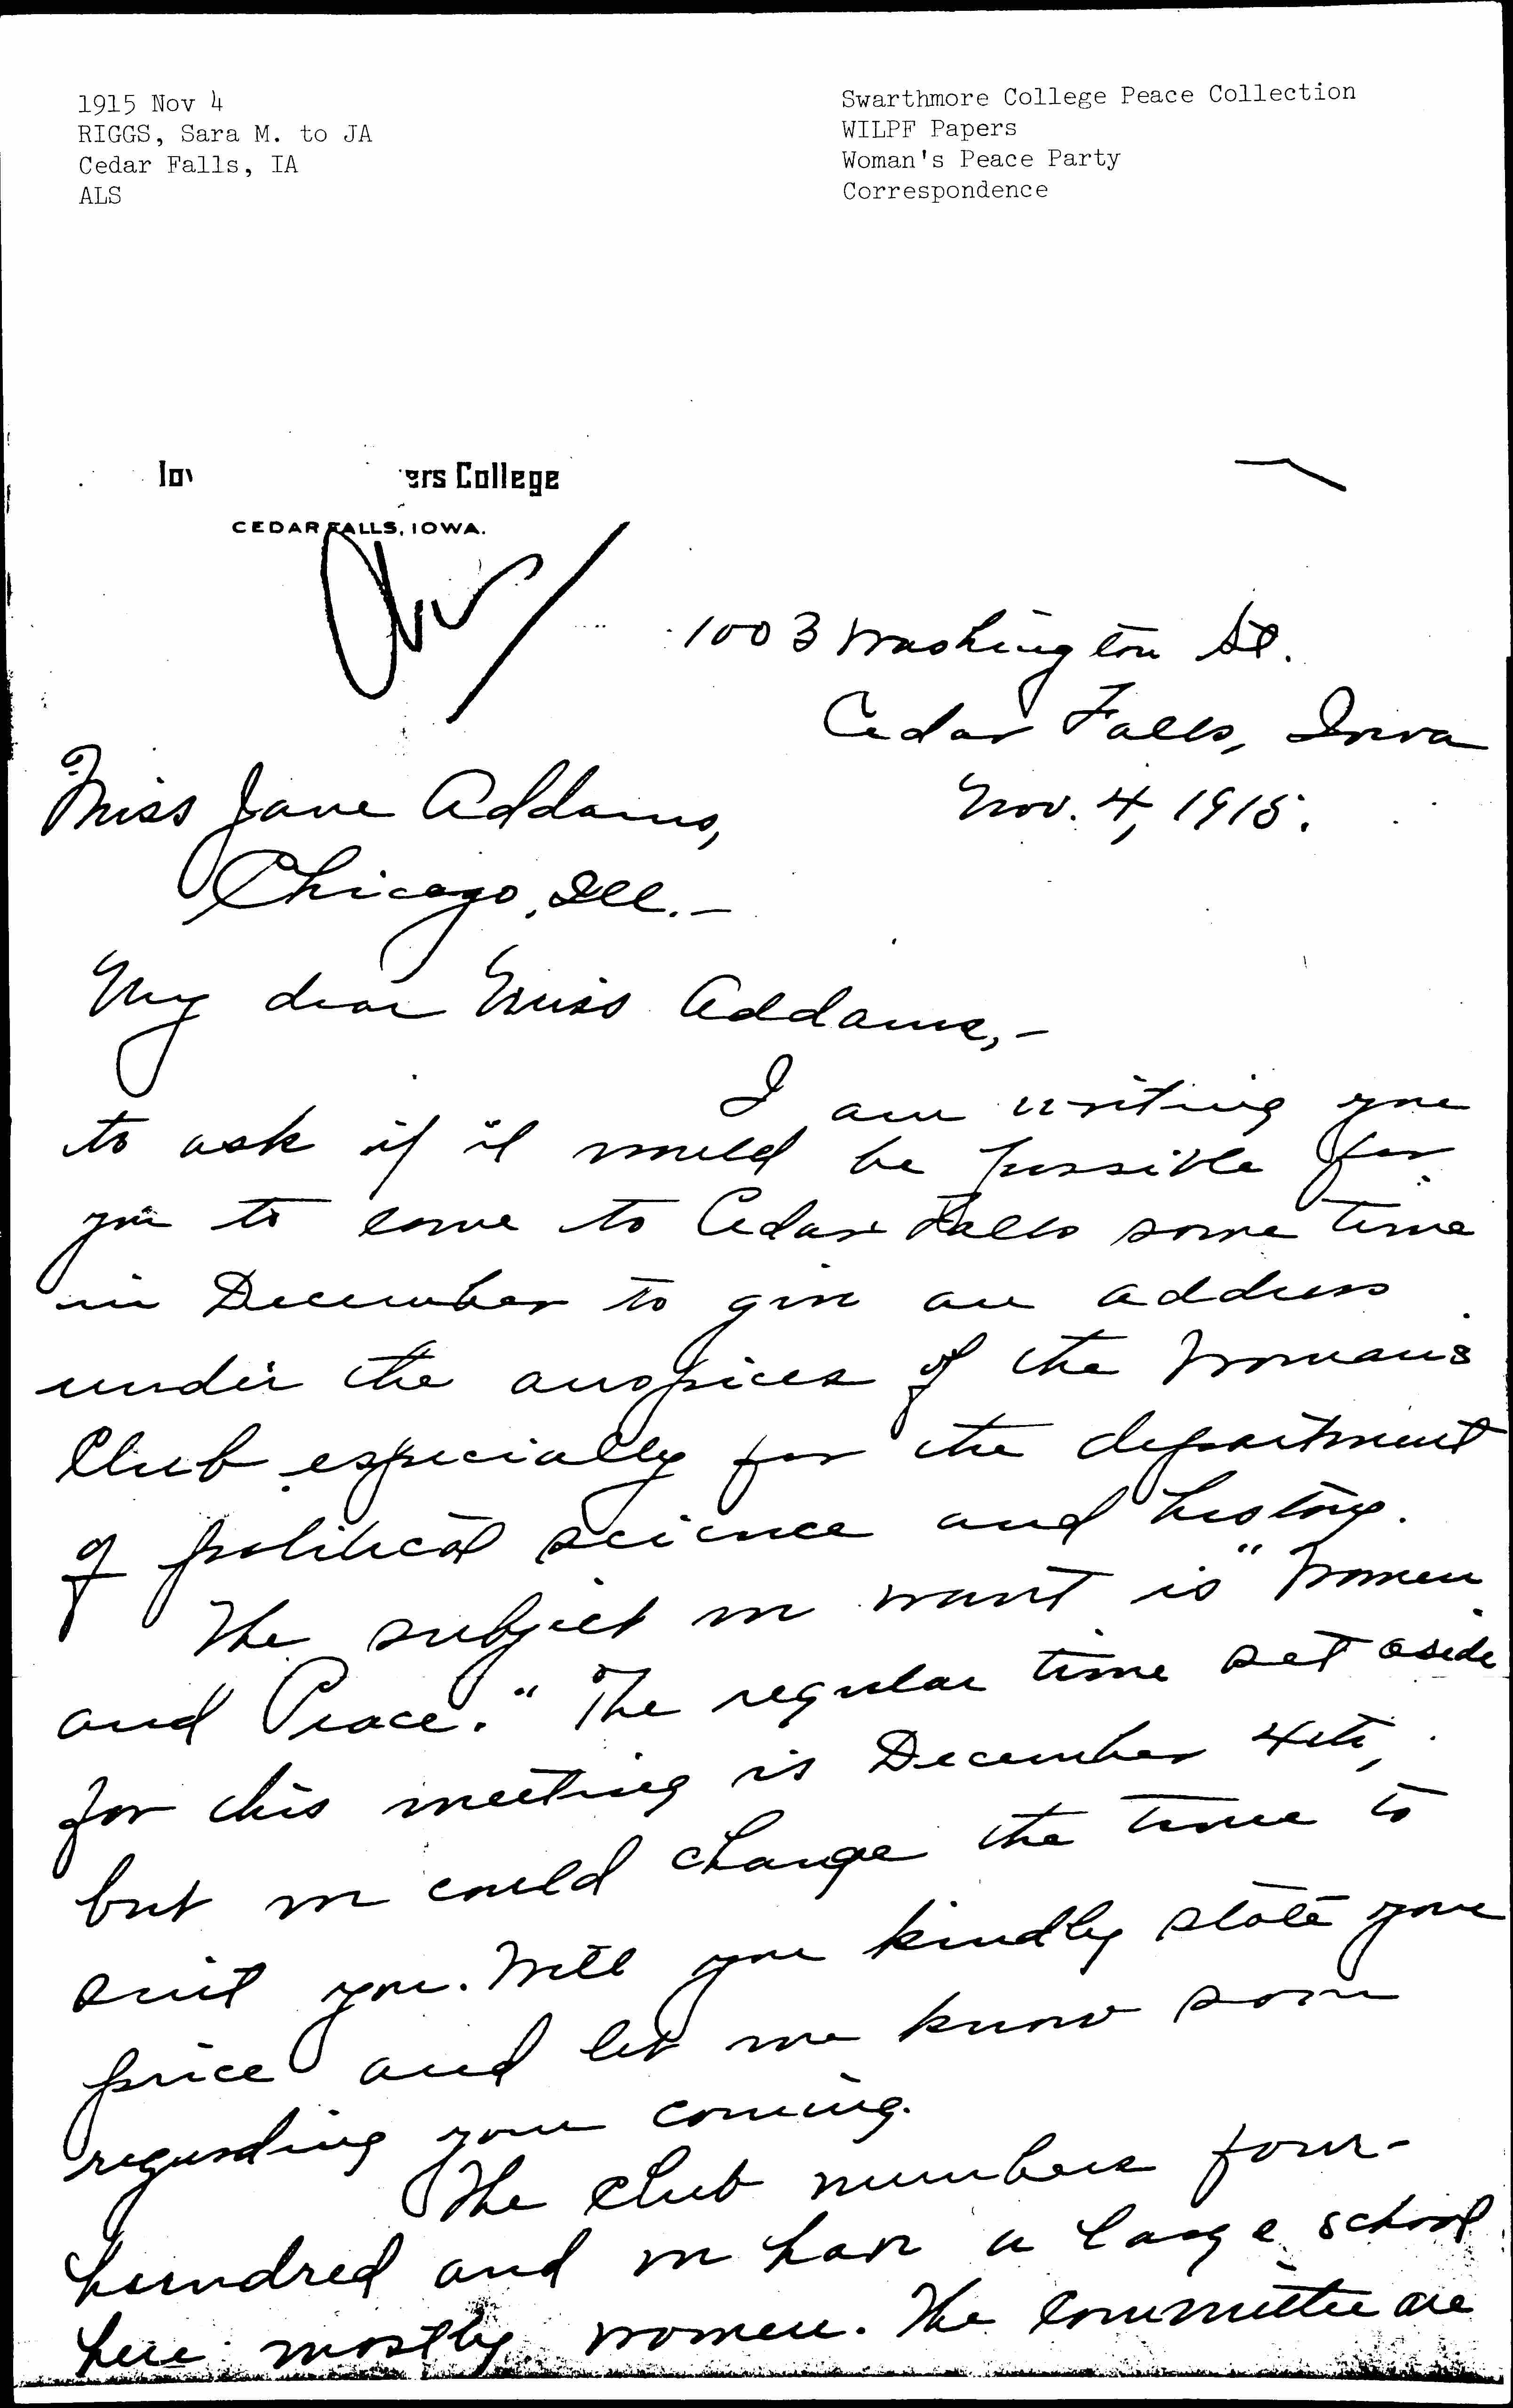 1915 Nov 4
RIGGS, Sara M. to JA
Cedar Falls, IA
ALS
Swarthmore College Peace Collection
WILPF Papers
Woman's Peace Party
Correspondence
ers College
CEDAR FALLS, IOWA.
1003 Washington St.
Cedar Falls, Iowa
Nov. 4, 1915.
Miss Jane Addams,
Chicago, Ill.-
My dear Miss Addams,-
I am writing you
to ask if it would be possible for
you to come to Cedar Falls some time
in December to give an address
under the auspices of the Woman's
Club especially for the department
of political science and history.
The subject we want is "Women
and Peace." The regular time set aside
for this meeting is December 4th,
but we could change the time to
suit you. Will you kindly state your
price and let me know soon
regarding your coming.
The Club numbers four-
hundred and we have a large school
here mostly women. The Committee are